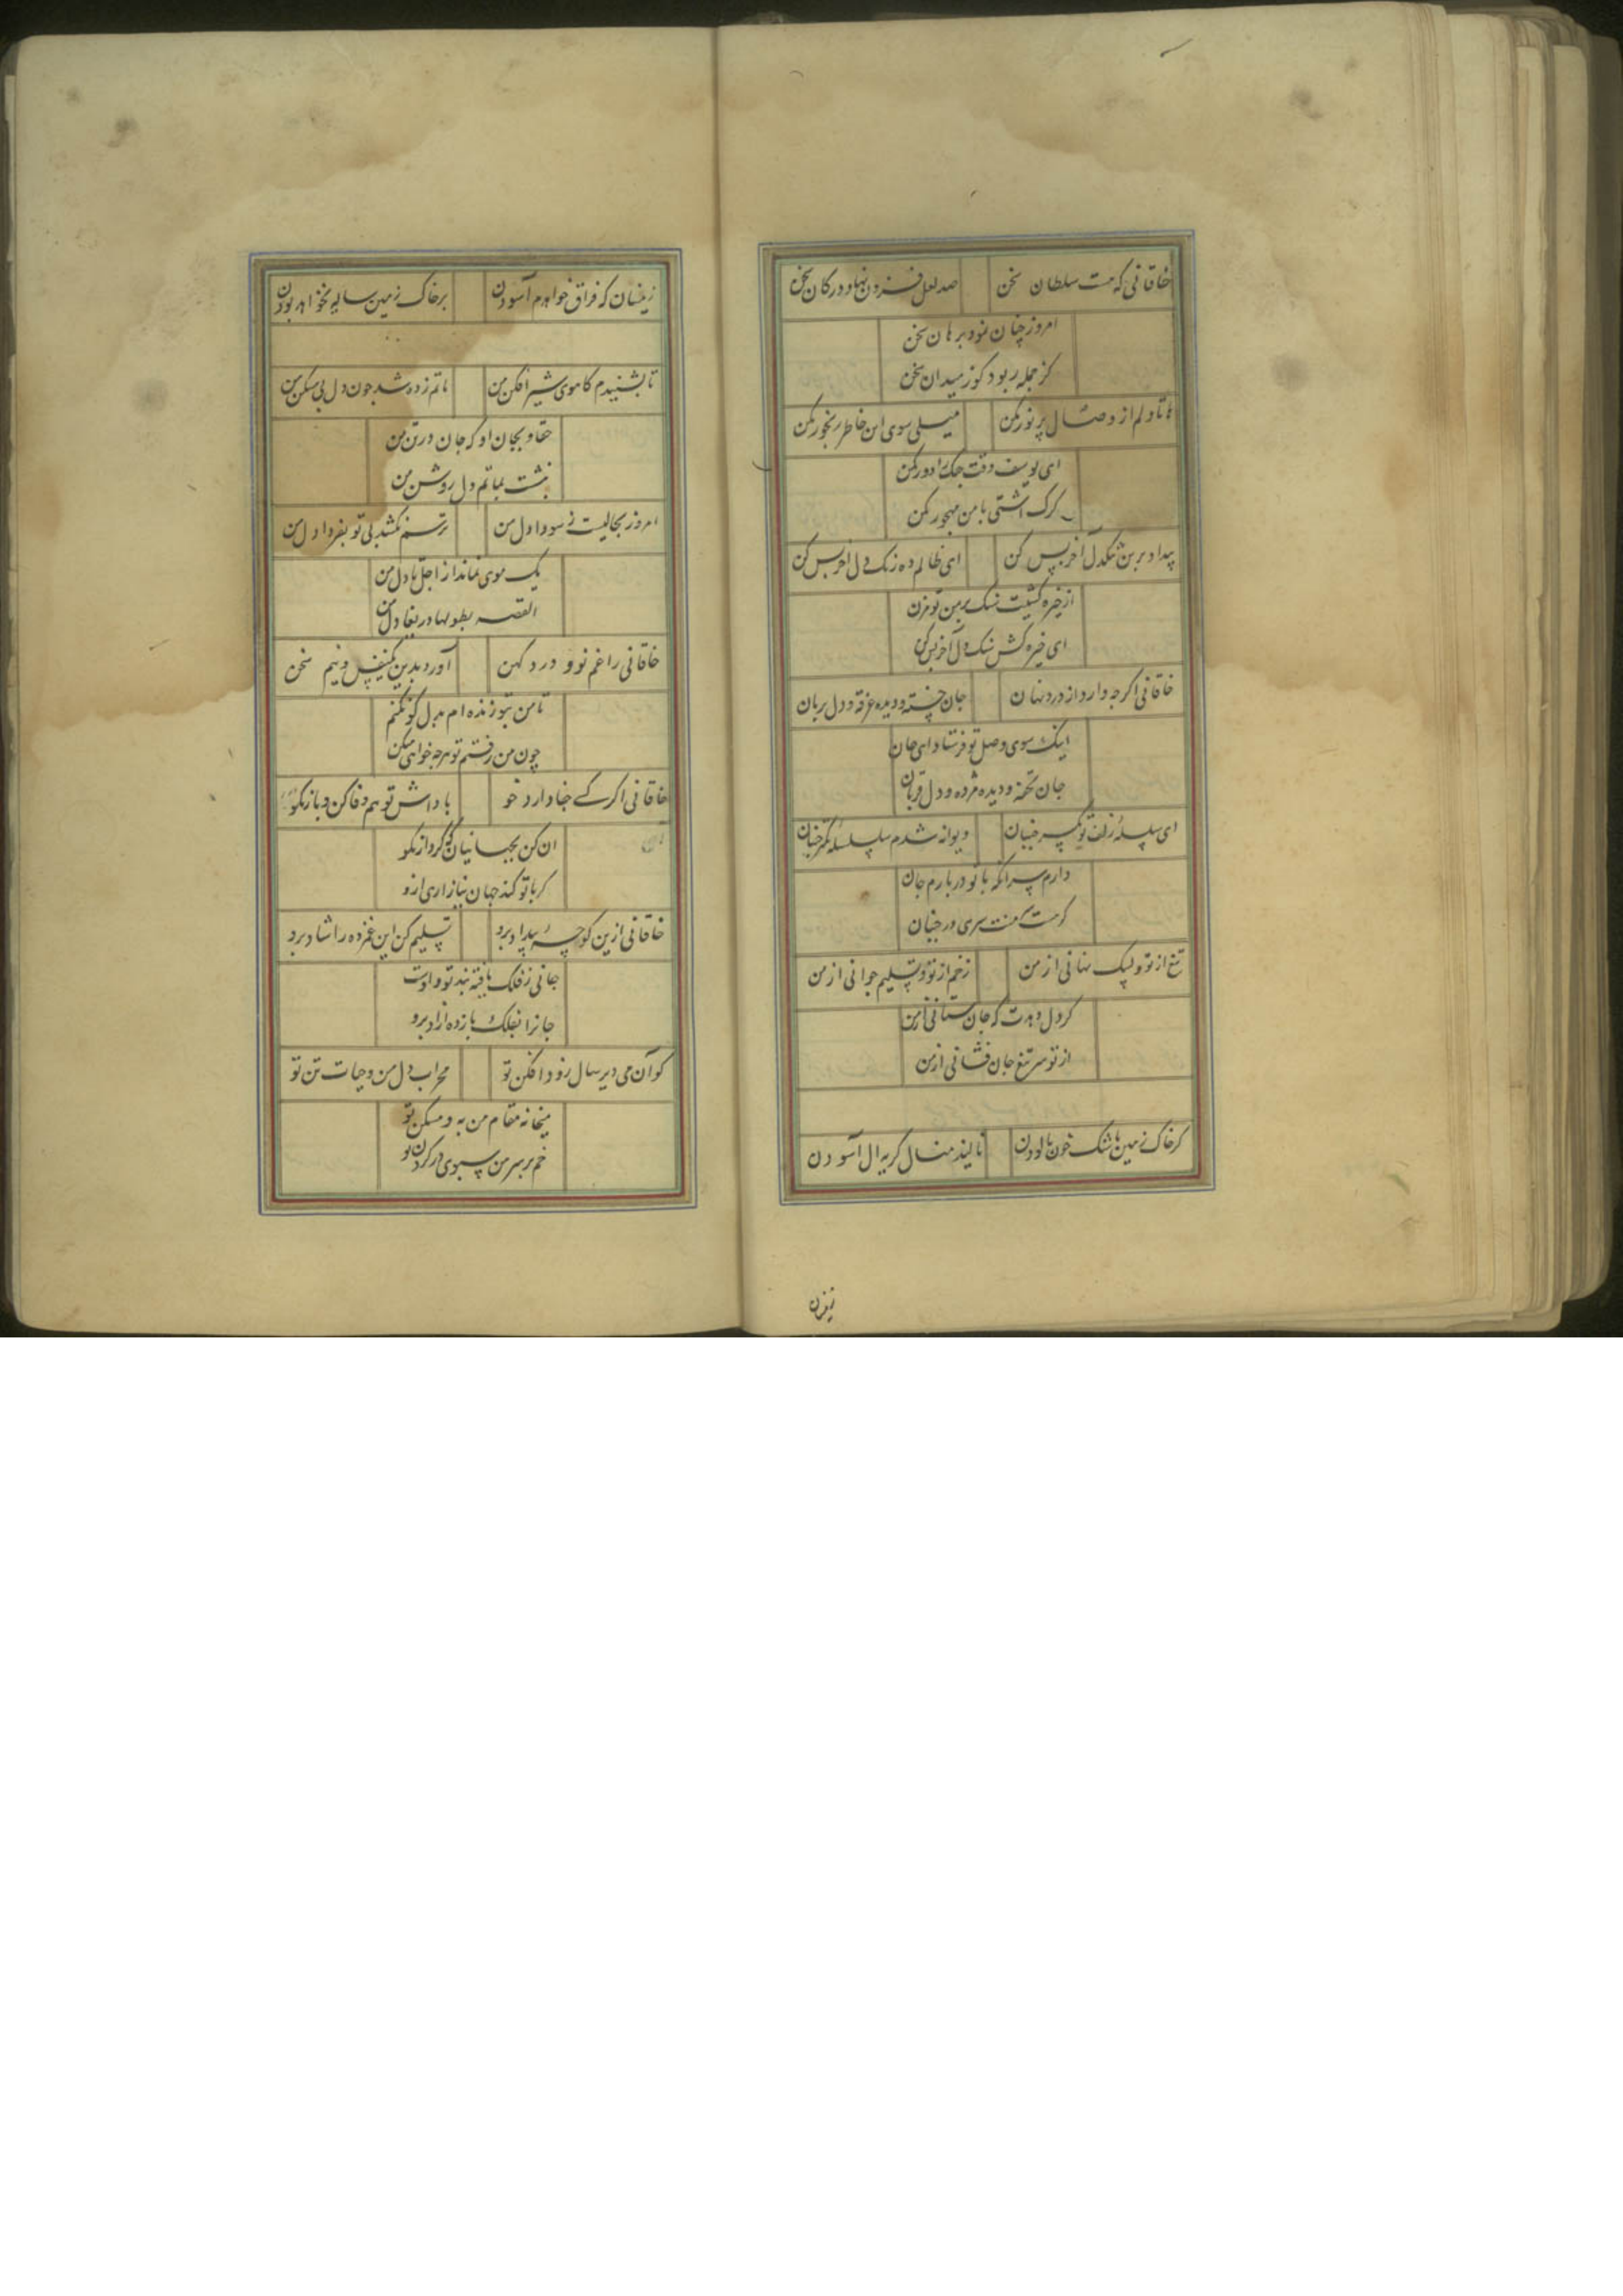 خاقانی که هست سلطان سخن
صد لعل فزون نهاد در کان سخن
امروز چنان نمود برهان سخن
کز جمله ربود کوز میدان سخن
تا دلم از وصال پر نور کن
میلی سوی این خاطر رنجور کن
ای یوسف وقت جنک را دور کن
کرک اشتی با من مهجور کن
بیداد برین تنکدل آخر بس کن
ای ظالم ده رنک دل آخر بس کن
از خیره کشیت سنک بر من تو مزن
ای خیره کش سنک دل آخر بس کن
خاقانی اکرچه دارد از درد نهان
جان خسته و دیده غرقه و دل بریان
اینک سوی وصل تو فرستاد ای جان
جان تحفه و دیده مژده و دل قربان
ای سلسله زلف تو یکسر جنبان
دیوانه شدم سلسله کمتر جنبان
دارم سر انکه با تو در بازم جان
کر هست منت سری در جنبان
تیغ از تو و لبیک نهانی از من
زخم از تو و تسلیم جوانی از من
کر دل دهدت که جان ستانی از من
از تو سر تیغ جان فشانی از من
کر خاک زمین باشک خون بالودن
تا لیذ منال کریه ال آسودن
زینسان که فراق خواهدم آسودن
بر خاک زمین سایه نخواهد بودن
تا بشنیدم کاهوی شیر افکن من
ماتم زده شد چون دل بی مسکن من
حقا و بجان او که جان در تن من
بنشست بماتم دل روشن من
امروز بحالیست ز سودا دل من
ترسم نکشد بی تو بفردا دل من
یک موی نماند از اجل تا دل من
القصه بطولها دریغا دل من
خاقانی را غم نو و درد کهن
آورد بدین یک نفس و نیم سخن
تا من بتو زنده ام بدل کو نکنم
چون من رفتم تو هرچه خواهی میکن
خاقانی اکر کسی جفا دارد خو
باداش تو هم وفا کن و باز مکو
ان کن بجهانیان که کردار نکو
کر با تو کند جهان نیازاری ازو
خاقانی ازین کوچه بیداد برو
تسلیم کن این غمزده را شاد برو
جانی ز فلک یافته بند تو اوست
جانرا بفلک باز ده ازاد برو
کو آن می دیر سال زود افکن تو
محراب دل من و حیات تن تو
میخانه مقام من به و مسکن تو
خم بر سر من سبوی در کردن تو